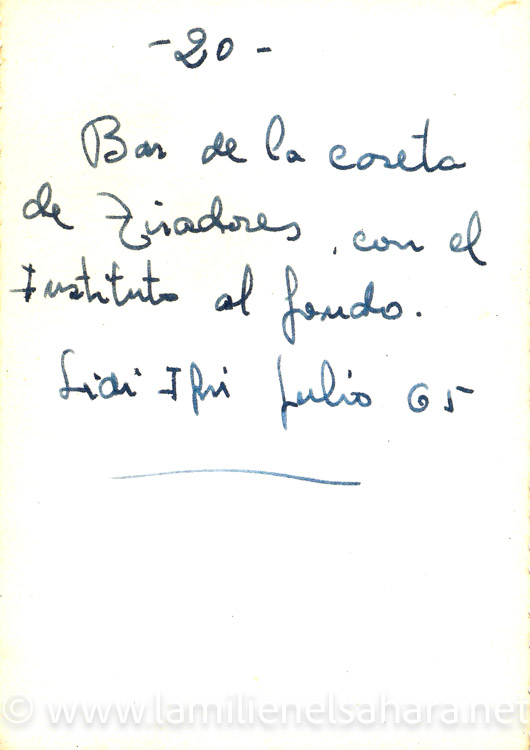 -20-
Bar de la caseta
de Tiradores, con el
Instituto al fondo.
Sidi Ifni Julio 65
© www.lamilienelsahara.net